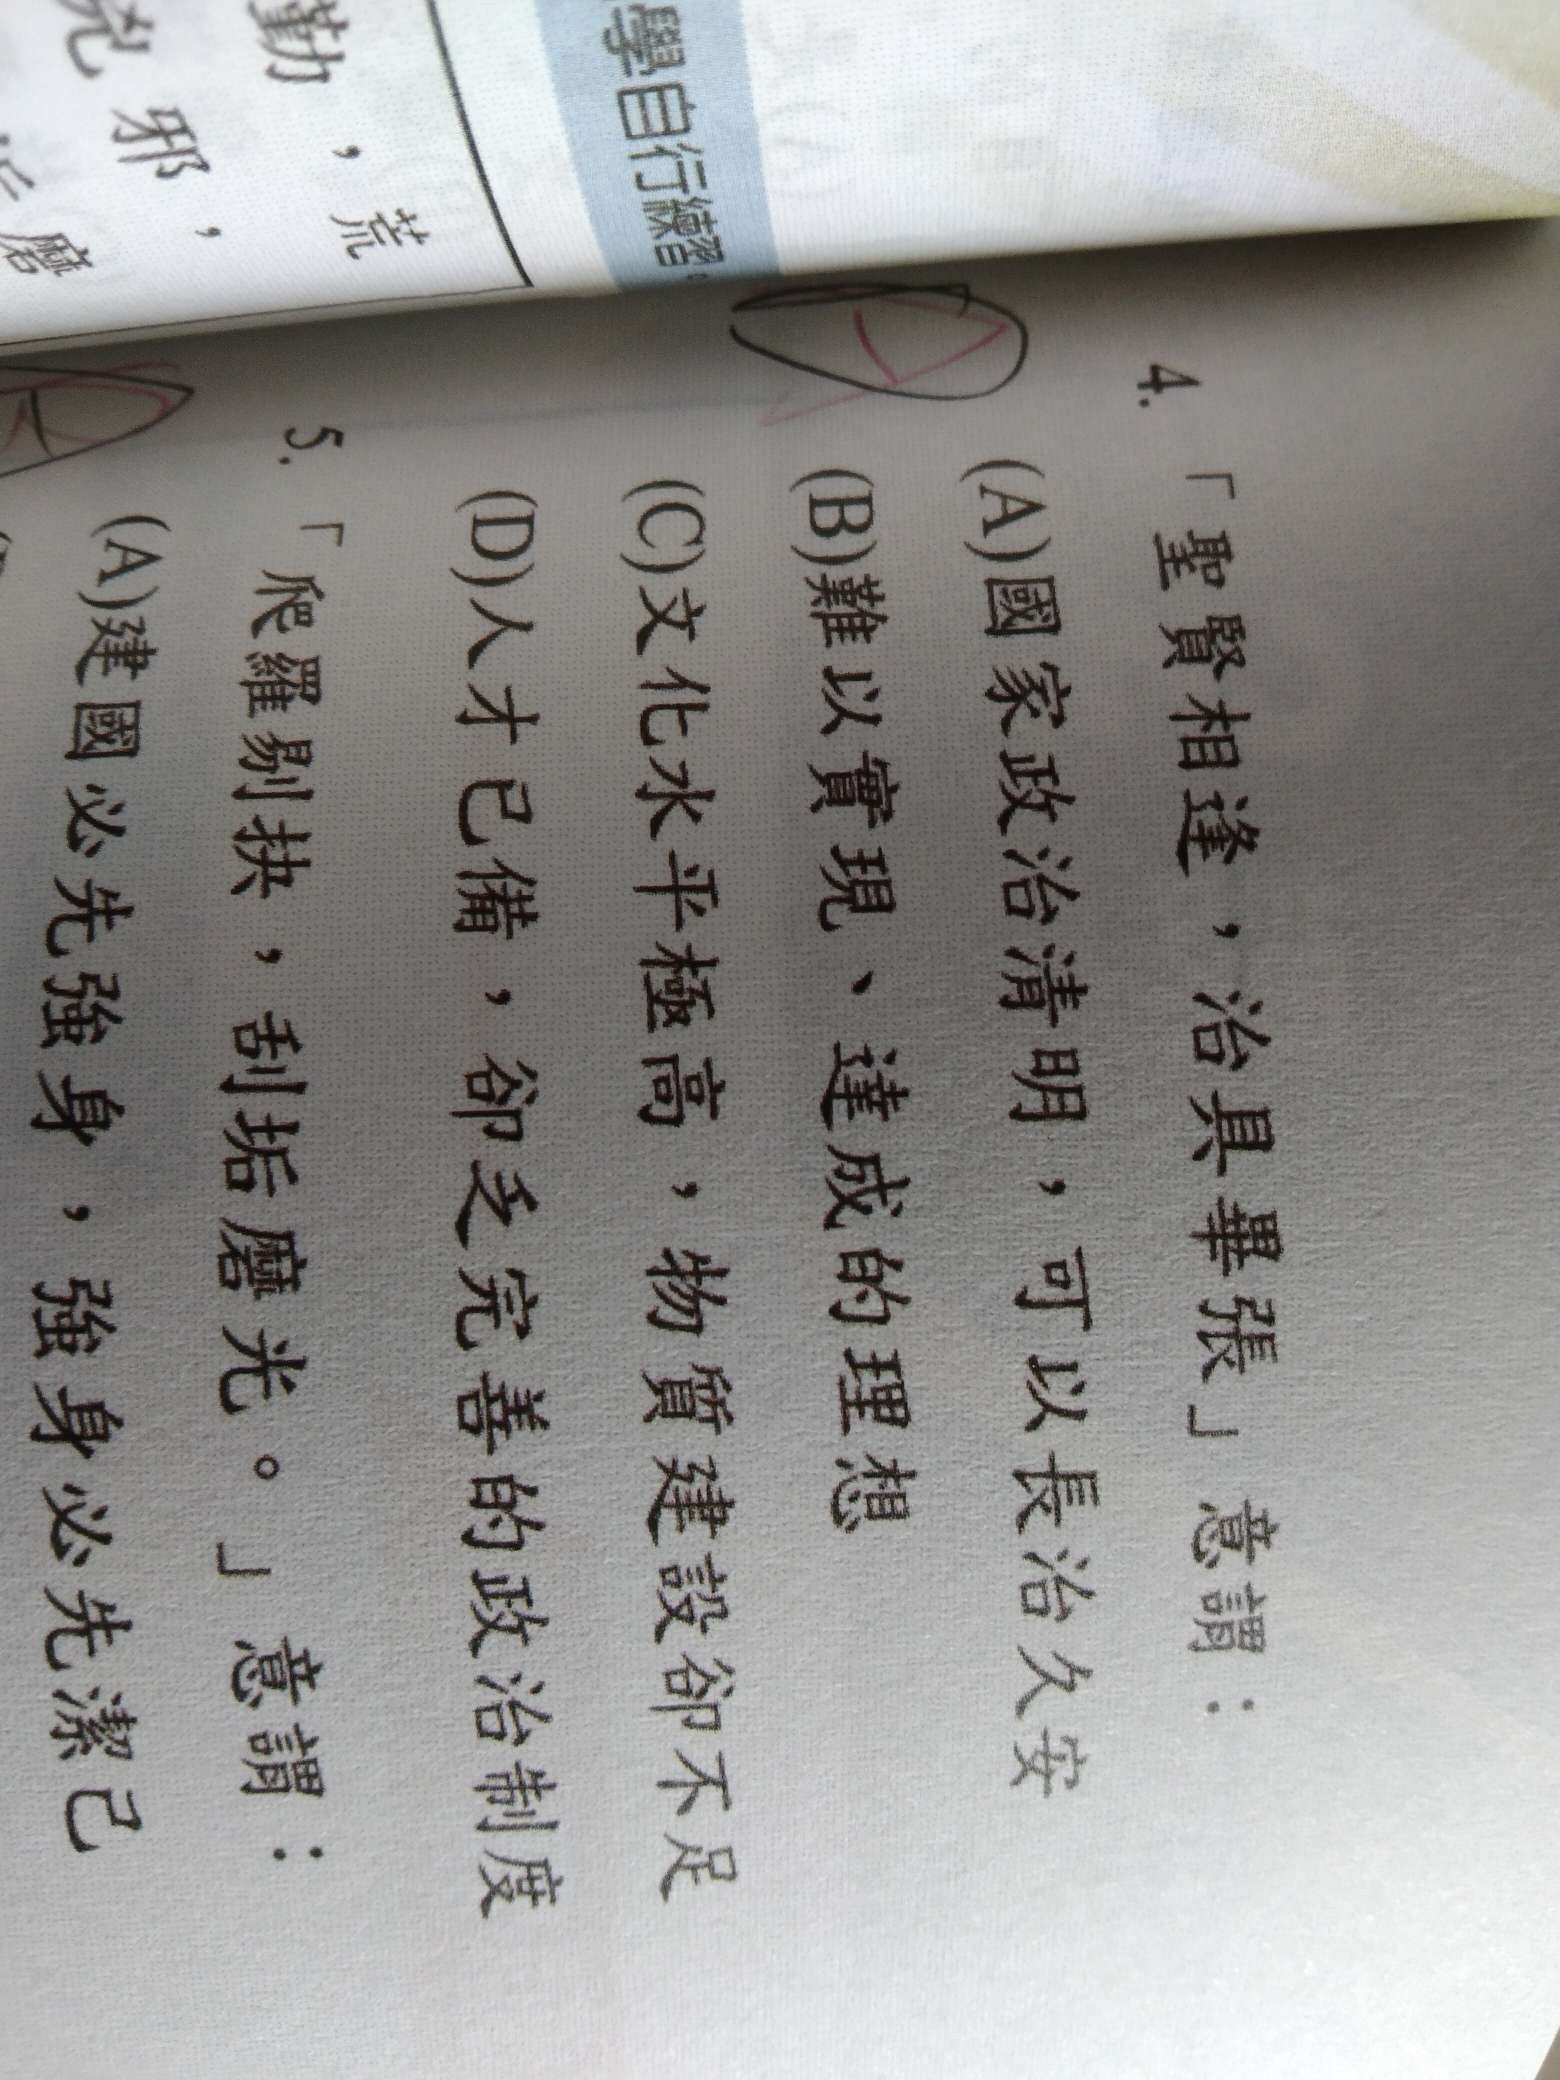 學自行練習。
勤，荒
兇邪，
磨
4.「聖賢相逢，治具畢張」意謂：
(A)國家政治清明，可以長治久安
(B)難以實現、達成的理想
(C)文化水平極高，物質建設卻不足
(D)人才已備，卻乏完善的政治制度
5.「爬羅剔抉，刮垢磨光。」意謂：
(A)建國必先強身，強身必先潔己